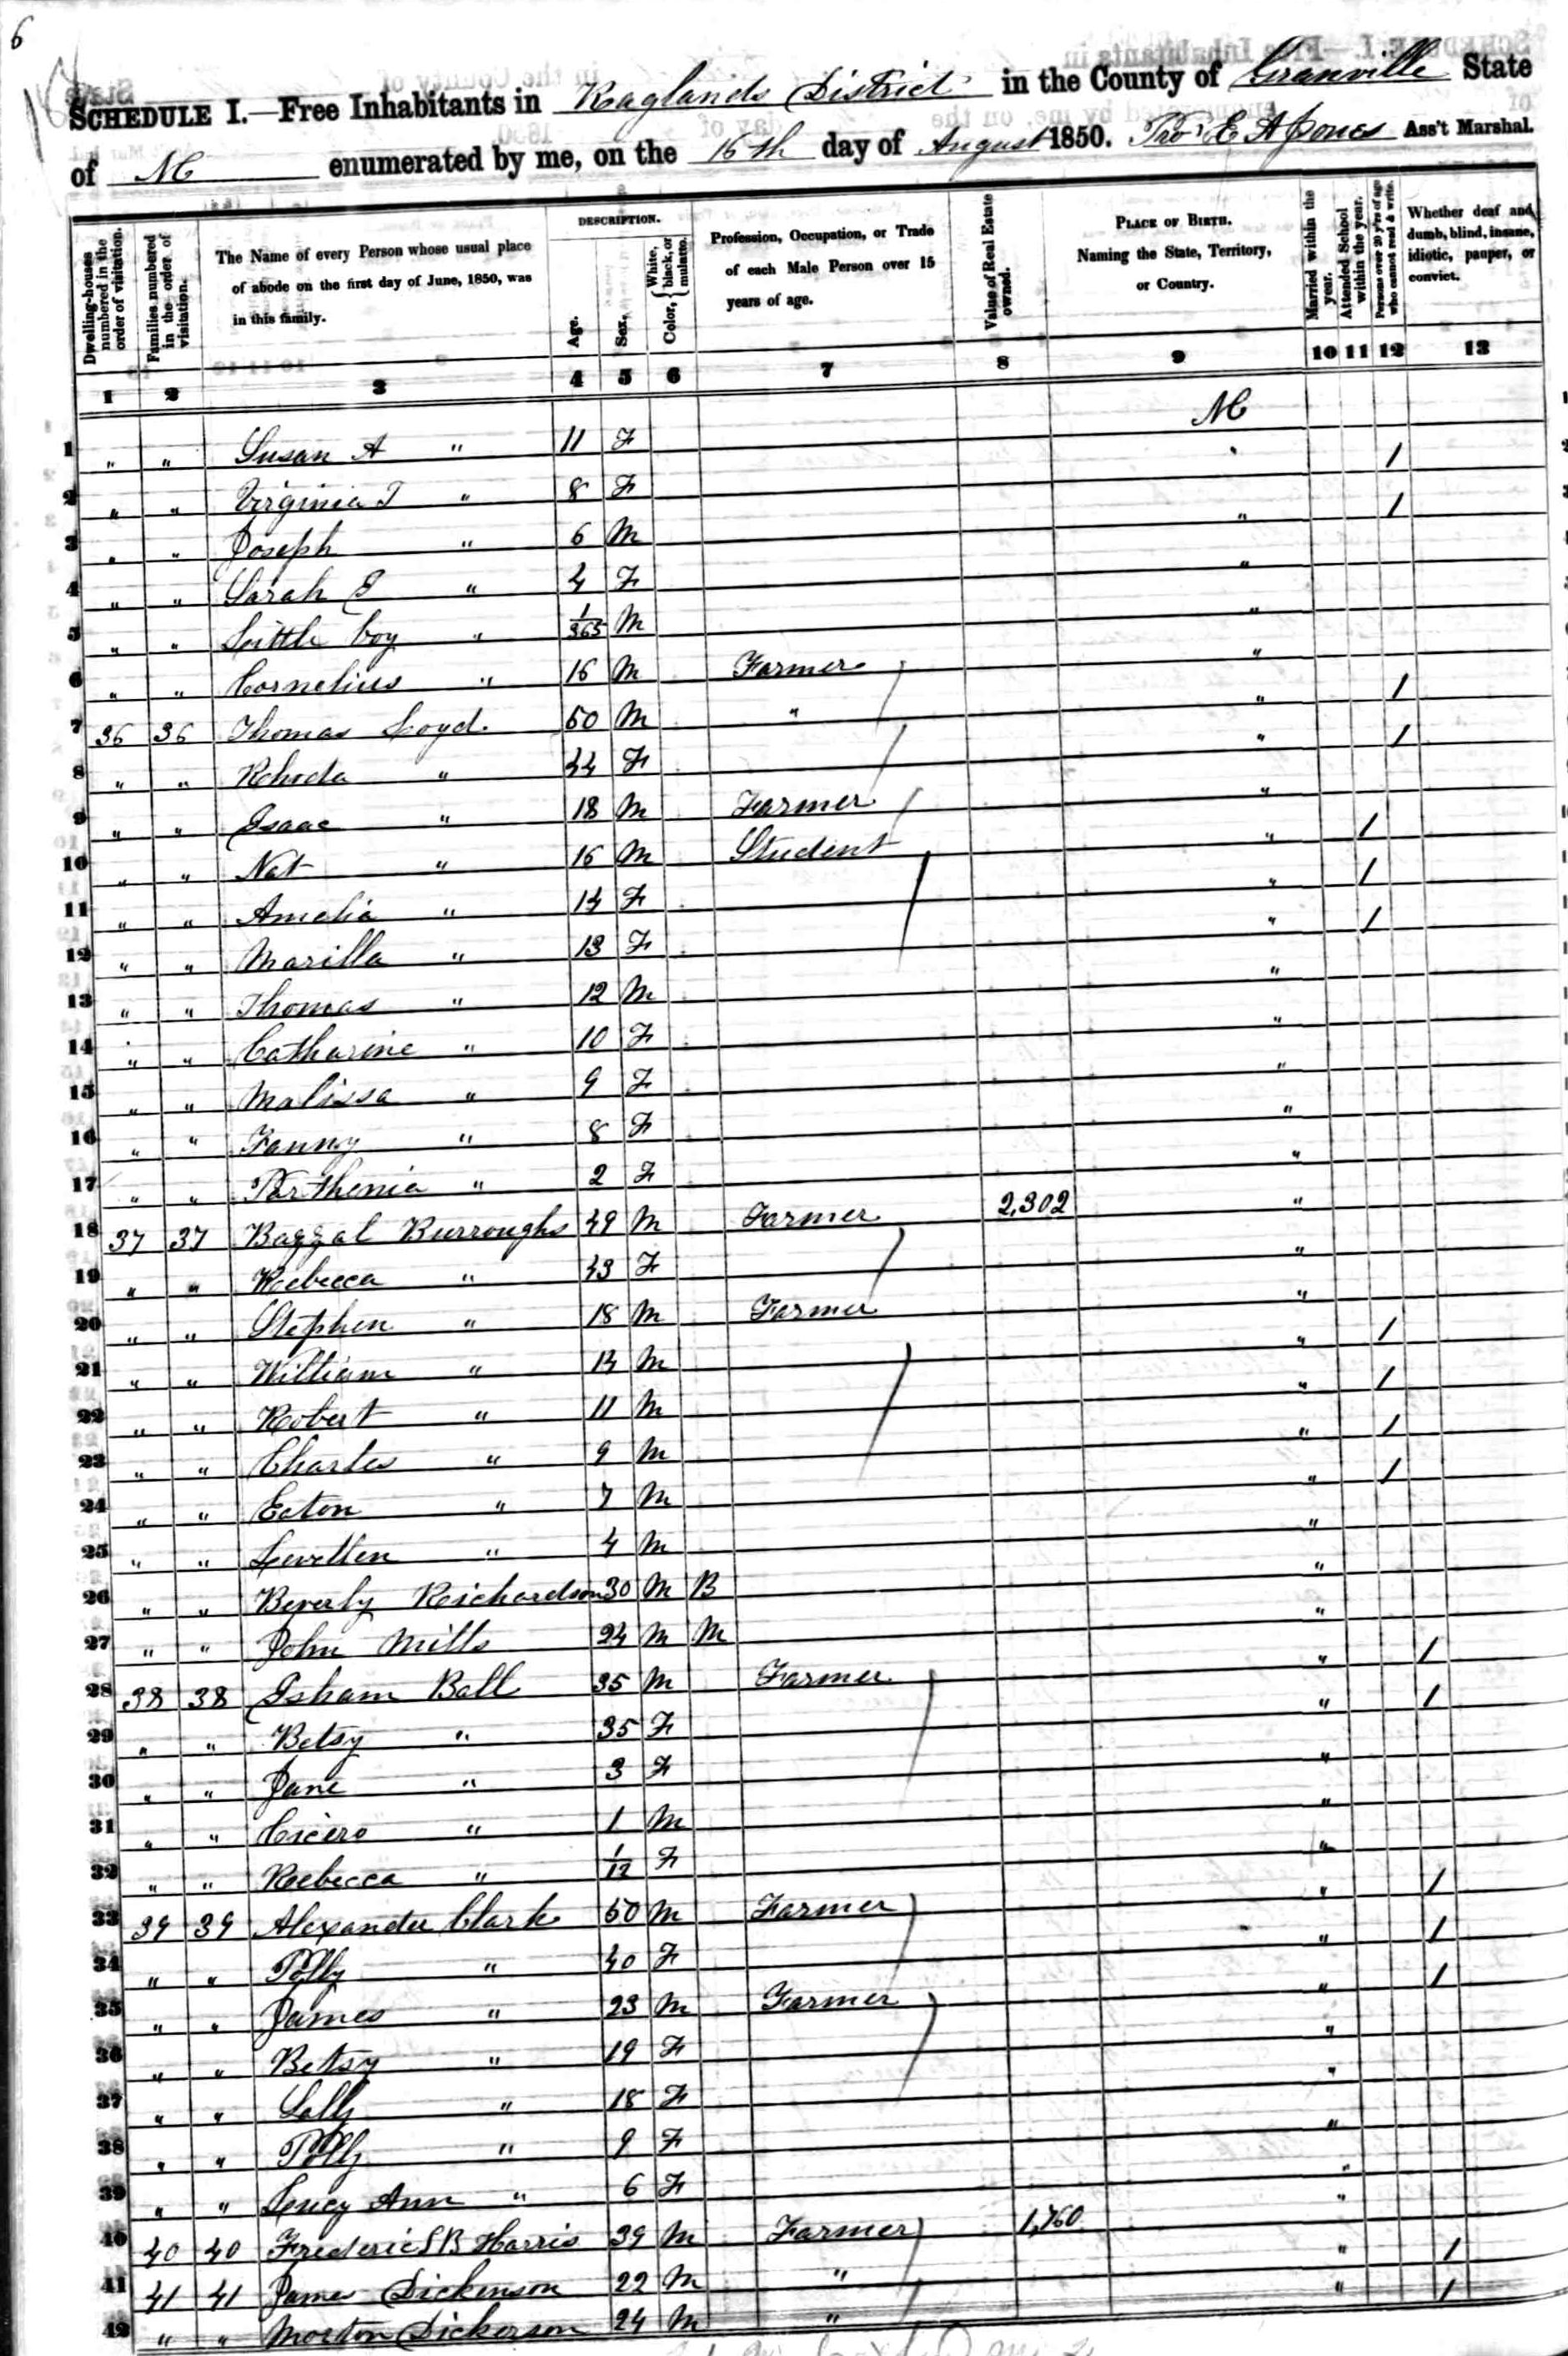 6
SCHEDULE I.—Free Inhabitants in Raglands District in the County of Granville State
of NC enumerated by me, on the 16th day of August 1850. Thos E A Jones Ass't Marshal.
Dwelling-houses numbered in the order of visitation.
Families numbered in the order of visitation.
The Name of every Person whose usual place of abode on the first day of June, 1850, was in this family.
DESCRIPTION.
Age.
Sex.
Color, { White, black, or mulatto.
Profession, Occupation, or Trade of each Male Person over 15 years of age.
Value of Real Estate owned.
PLACE OF BIRTH. Naming the State, Territory, or Country.
Married within the year.
Attended School within the year.
Persons over 20 y'rs of age who cannot read & write.
Whether deaf and dumb, blind, insane, idiotic, pauper, or convict.
1 2 3 4 5 6 7 8 9 10 11 12 13
1 " " Susan A " 11 F NC
2 " " Virginia T " 8 F " 1
3 " " Joseph " 6 M " 1
4 " " Sarah E " 4 F "
5 " " Little boy " 1/365 M "
6 " " Cornelius " 16 M Farmer "
7 36 36 Thomas Loyd 50 M " " 1
8 " " Rhoda " 44 F " 1
9 " " Isaac " 18 M Farmer "
10 " " Nat " 16 M Student " 1
11 " " Amelia " 14 F " 1
12 " " Marilla " 13 F " 1
13 " " Thomas " 12 M "
14 " " Catharine " 10 F "
15 " " Malissa " 9 F "
16 " " Fanny " 8 F "
17 " " Parthenia " 2 F "
18 37 37 Bazzal Burroughs 49 M Farmer 2,302 "
19 " " Rebecca " 43 F "
20 " " Stephen " 18 M Farmer "
21 " " William " 14 M " 1
22 " " Robert " 11 M " 1
23 " " Charles " 9 M " 1
24 " " Ecton " 7 M " 1
25 " " Lewellen " 4 M "
26 " " Beverly Richardson 30 M B "
27 " " John Mills 24 M M "
28 38 38 Isham Ball 35 M Farmer " 1
29 " " Betsy " 35 F " 1
30 " " Jane " 3 F "
31 " " Cicero " 1 M "
32 " " Rebecca " 1/12 F "
33 39 39 Alexander Clark 50 M Farmer " 1
34 " " Polly " 40 F " 1
35 " " James " 23 M Farmer " 1
36 " " Betsy " 19 F "
37 " " Sally " 18 F "
38 " " Polly " 9 F "
39 " " Lucy Ann " 6 F "
40 40 40 Frederic S B Harris 39 M Farmer 1,760 "
41 41 41 James Dickenson 22 M " " 1
42 " " Morton Dickerson 24 M " " 1